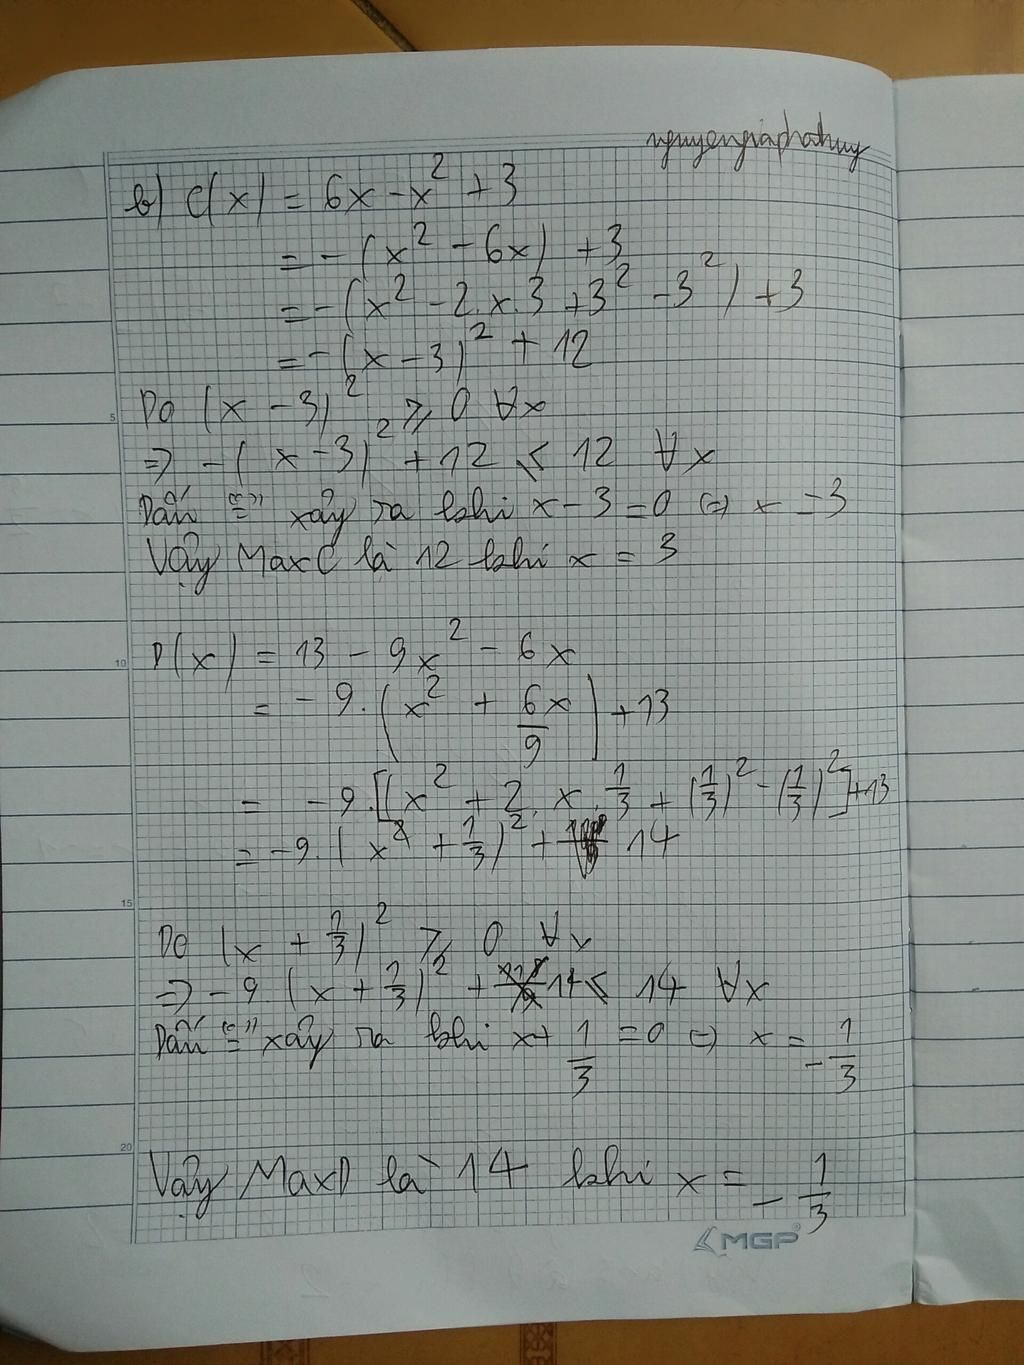 nguyengiaphathuy
b) C(x) = 6x - x² + 3
= -(x² - 6x) + 3
= -(x² - 2.x.3 + 3² - 3²) + 3
= -(x - 3)² + 12
5
Do (x - 3)² ⩾ 0 ∀x
=> -(x - 3)² + 12 ⩽ 12 ∀x
Dấu "=" xảy ra khi x - 3 = 0 (=) x = 3
Vậy MaxC là 12 khi x = 3
10
D(x) = 13 - 9x² - 6x
= -9.(x² + 6x/9) + 13
= -9.[(x² + 2.x.1/3 + (1/3)² - (1/3)²] + 13
= -9.(x² + 1/3)² + 14
15
Do (x + 1/3)² ⩾ 0 ∀x
=> -9.(x + 1/3)² + 14 ⩽ 14 ∀x
Dấu "=" xảy ra khi x + 1/3 = 0 (=) x = -1/3
20
Vậy MaxD là 14 khi x = -1/3
MGP